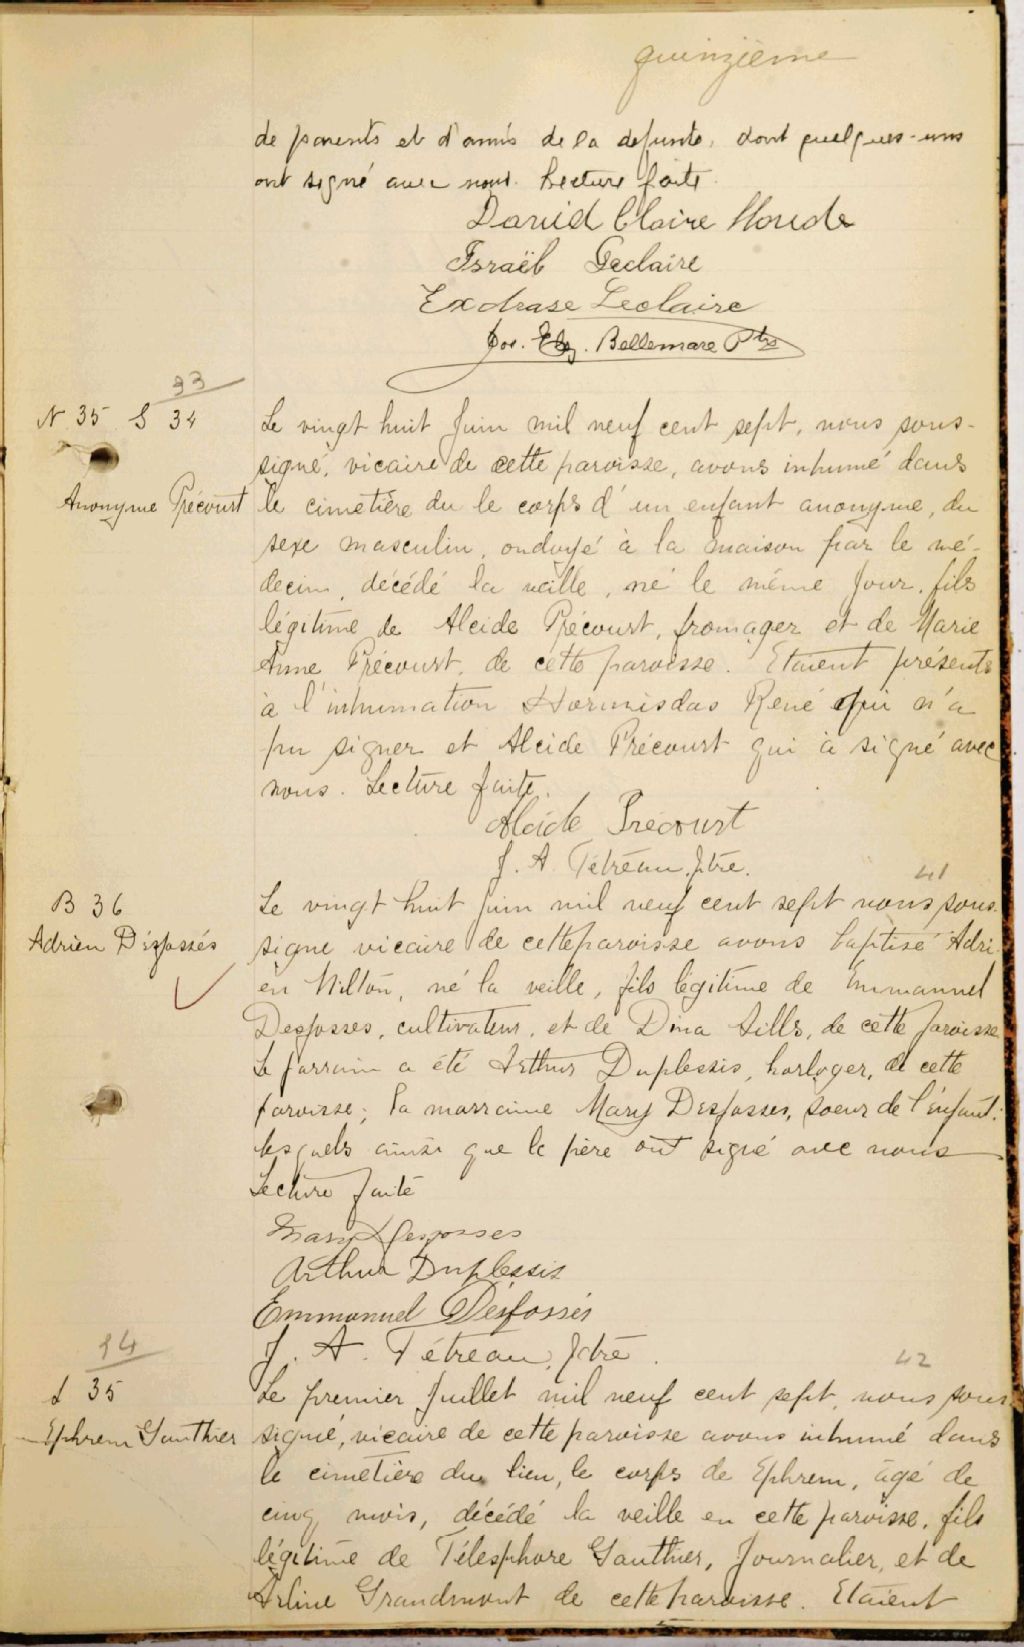 quinzième
de parents et d'amis de la defunte, dont quelques-uns
ont signé avec nous. Lecture faite.
David Claire Houde
Israël Leclaire
Exdrase Leclaire
Jos. Elz. Bellemare Ptre
33
N 35 S 34
Anonyme Précourt
Le vingt huit Juin mil neuf cent sept, nous sous-
signé, vicaire de cette paroisse, avons inhumé dans
le cimetière du le corps d'un enfant anonyme, du
sexe masculin, ondoyé à la maison par le mé-
decin, décédé la veille, né le même jour, fils
légitime de Alcide Précourt, fromager et de Marie
Anne Précourt, de cette paroisse. Etaient présents
à l'inhumation Hormisdas René qui n'a
pu signer et Alcide Précourt qui a signé avec
nous. Lecture faite.
Alcide Précourt
J. A. Tétreau, ptre.
41
B 36
Adrien Désfossés
Le vingt huit juin mil neuf cent sept nous sous-
signe vicaire de cette paroisse avons baptisé Adri-
en Milton, né la veille, fils légitime de Emmanuel
Desfosses, cultivateur, et de Dina Sills, de cette paroisse
Le parrain a été Arthur Duplessis, horloger, de cette
paroisse; la marraine Mary Desfosses, soeur de l'enfant:
lesquels ainsi que le père ont signé avec nous
Lecture faite
Mary Desfosses
Arthur Duplessis
Emmanuel Désfossés
J. A. Tétreau, ptre.
42
34
S 35
Ephrem Gauthier
Le premier Juillet mil neuf cent sept, nous sous
signé, vicaire de cette paroisse avons inhumé dans
le cimetière du lieu, le corps de Ephrem, âgé de
cinq mois, décédé la veille en cette paroisse, fils
légitime de Télesphore Gauthier, Journalier, et de
Arline Grandmont de cette paroisse. Etaient